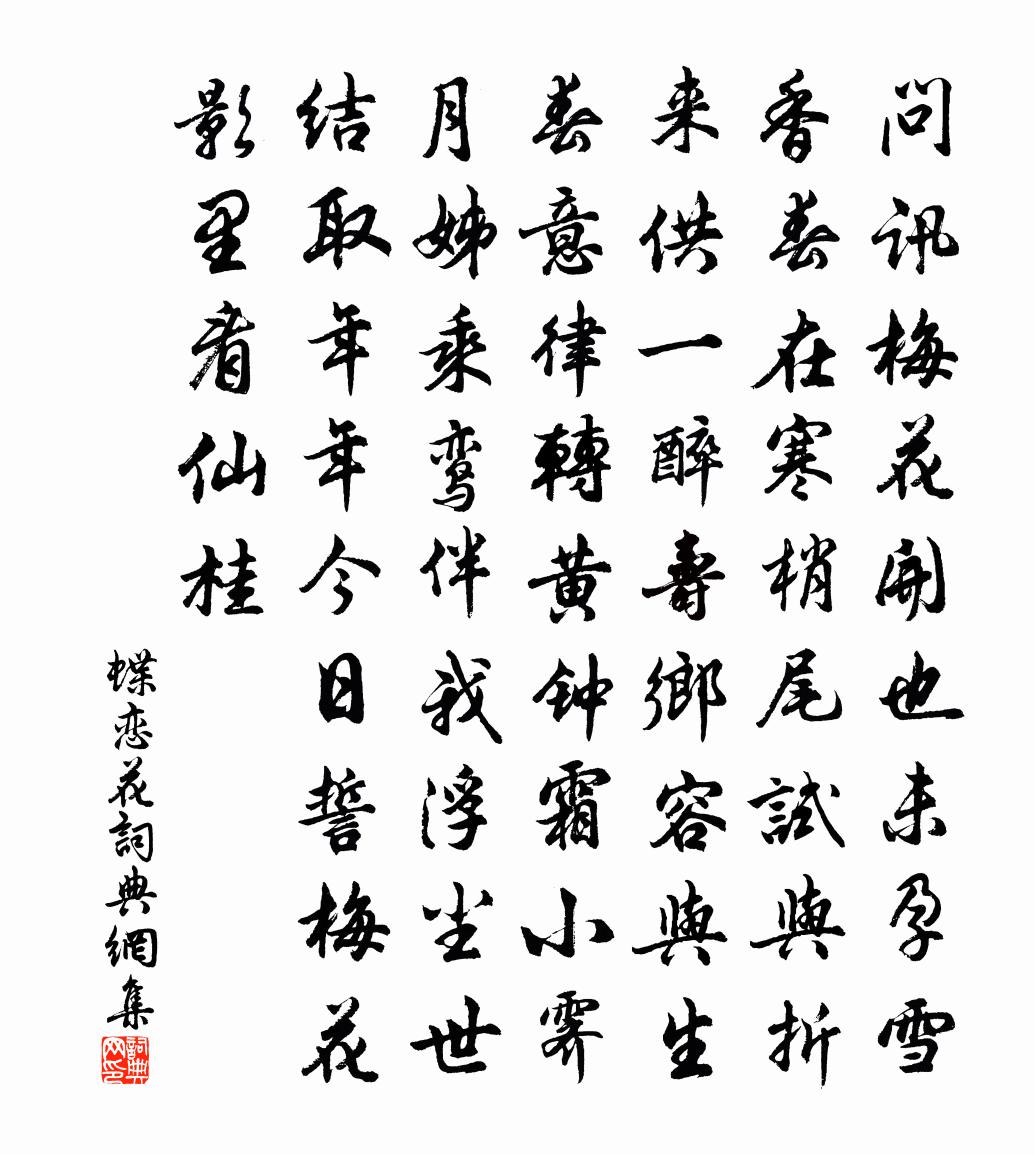 问讯梅花開也未孕雪
香春在寒梢尾試與折
来供一醉壽鄉容與生
春意律轉黄钟霜小霁
月姊乘鸾伴我浮尘世
结取年年今日誓梅花
影里看仙桂
蝶恋花詞典網集
詞典网印